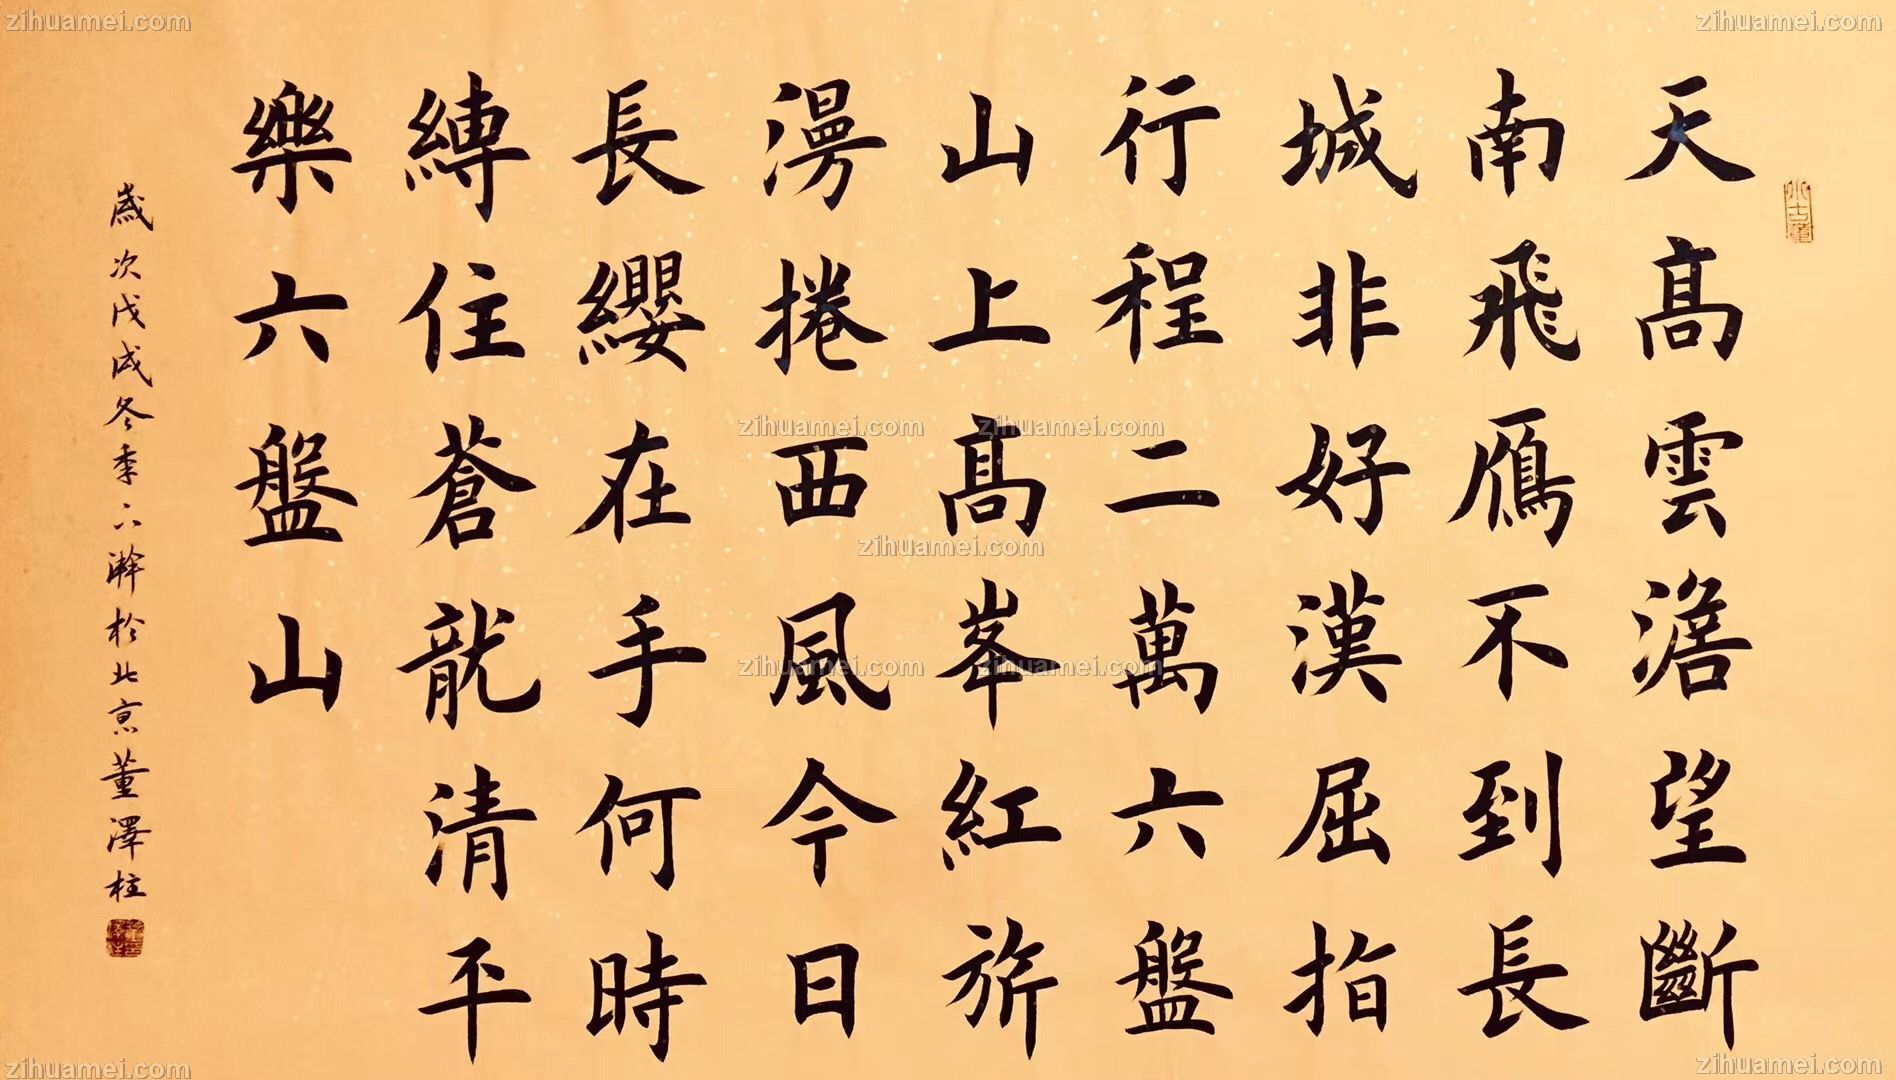 zihuamei.com
zihuamei.com
天髙雲澹望斷
南飛鴈不到長
城非好漢屈指
行程二萬六盤
山上髙峯紅旂
漫捲西風今日
長纓在手何時
縛住蒼龍清平
樂六盤山
歲次戊戌冬季下澣於北京董澤柱
zihuamei.com
zihuamei.com
zihuamei.com
zihuamei.com
zihuamei.com
zihuamei.com
zihuamei.com